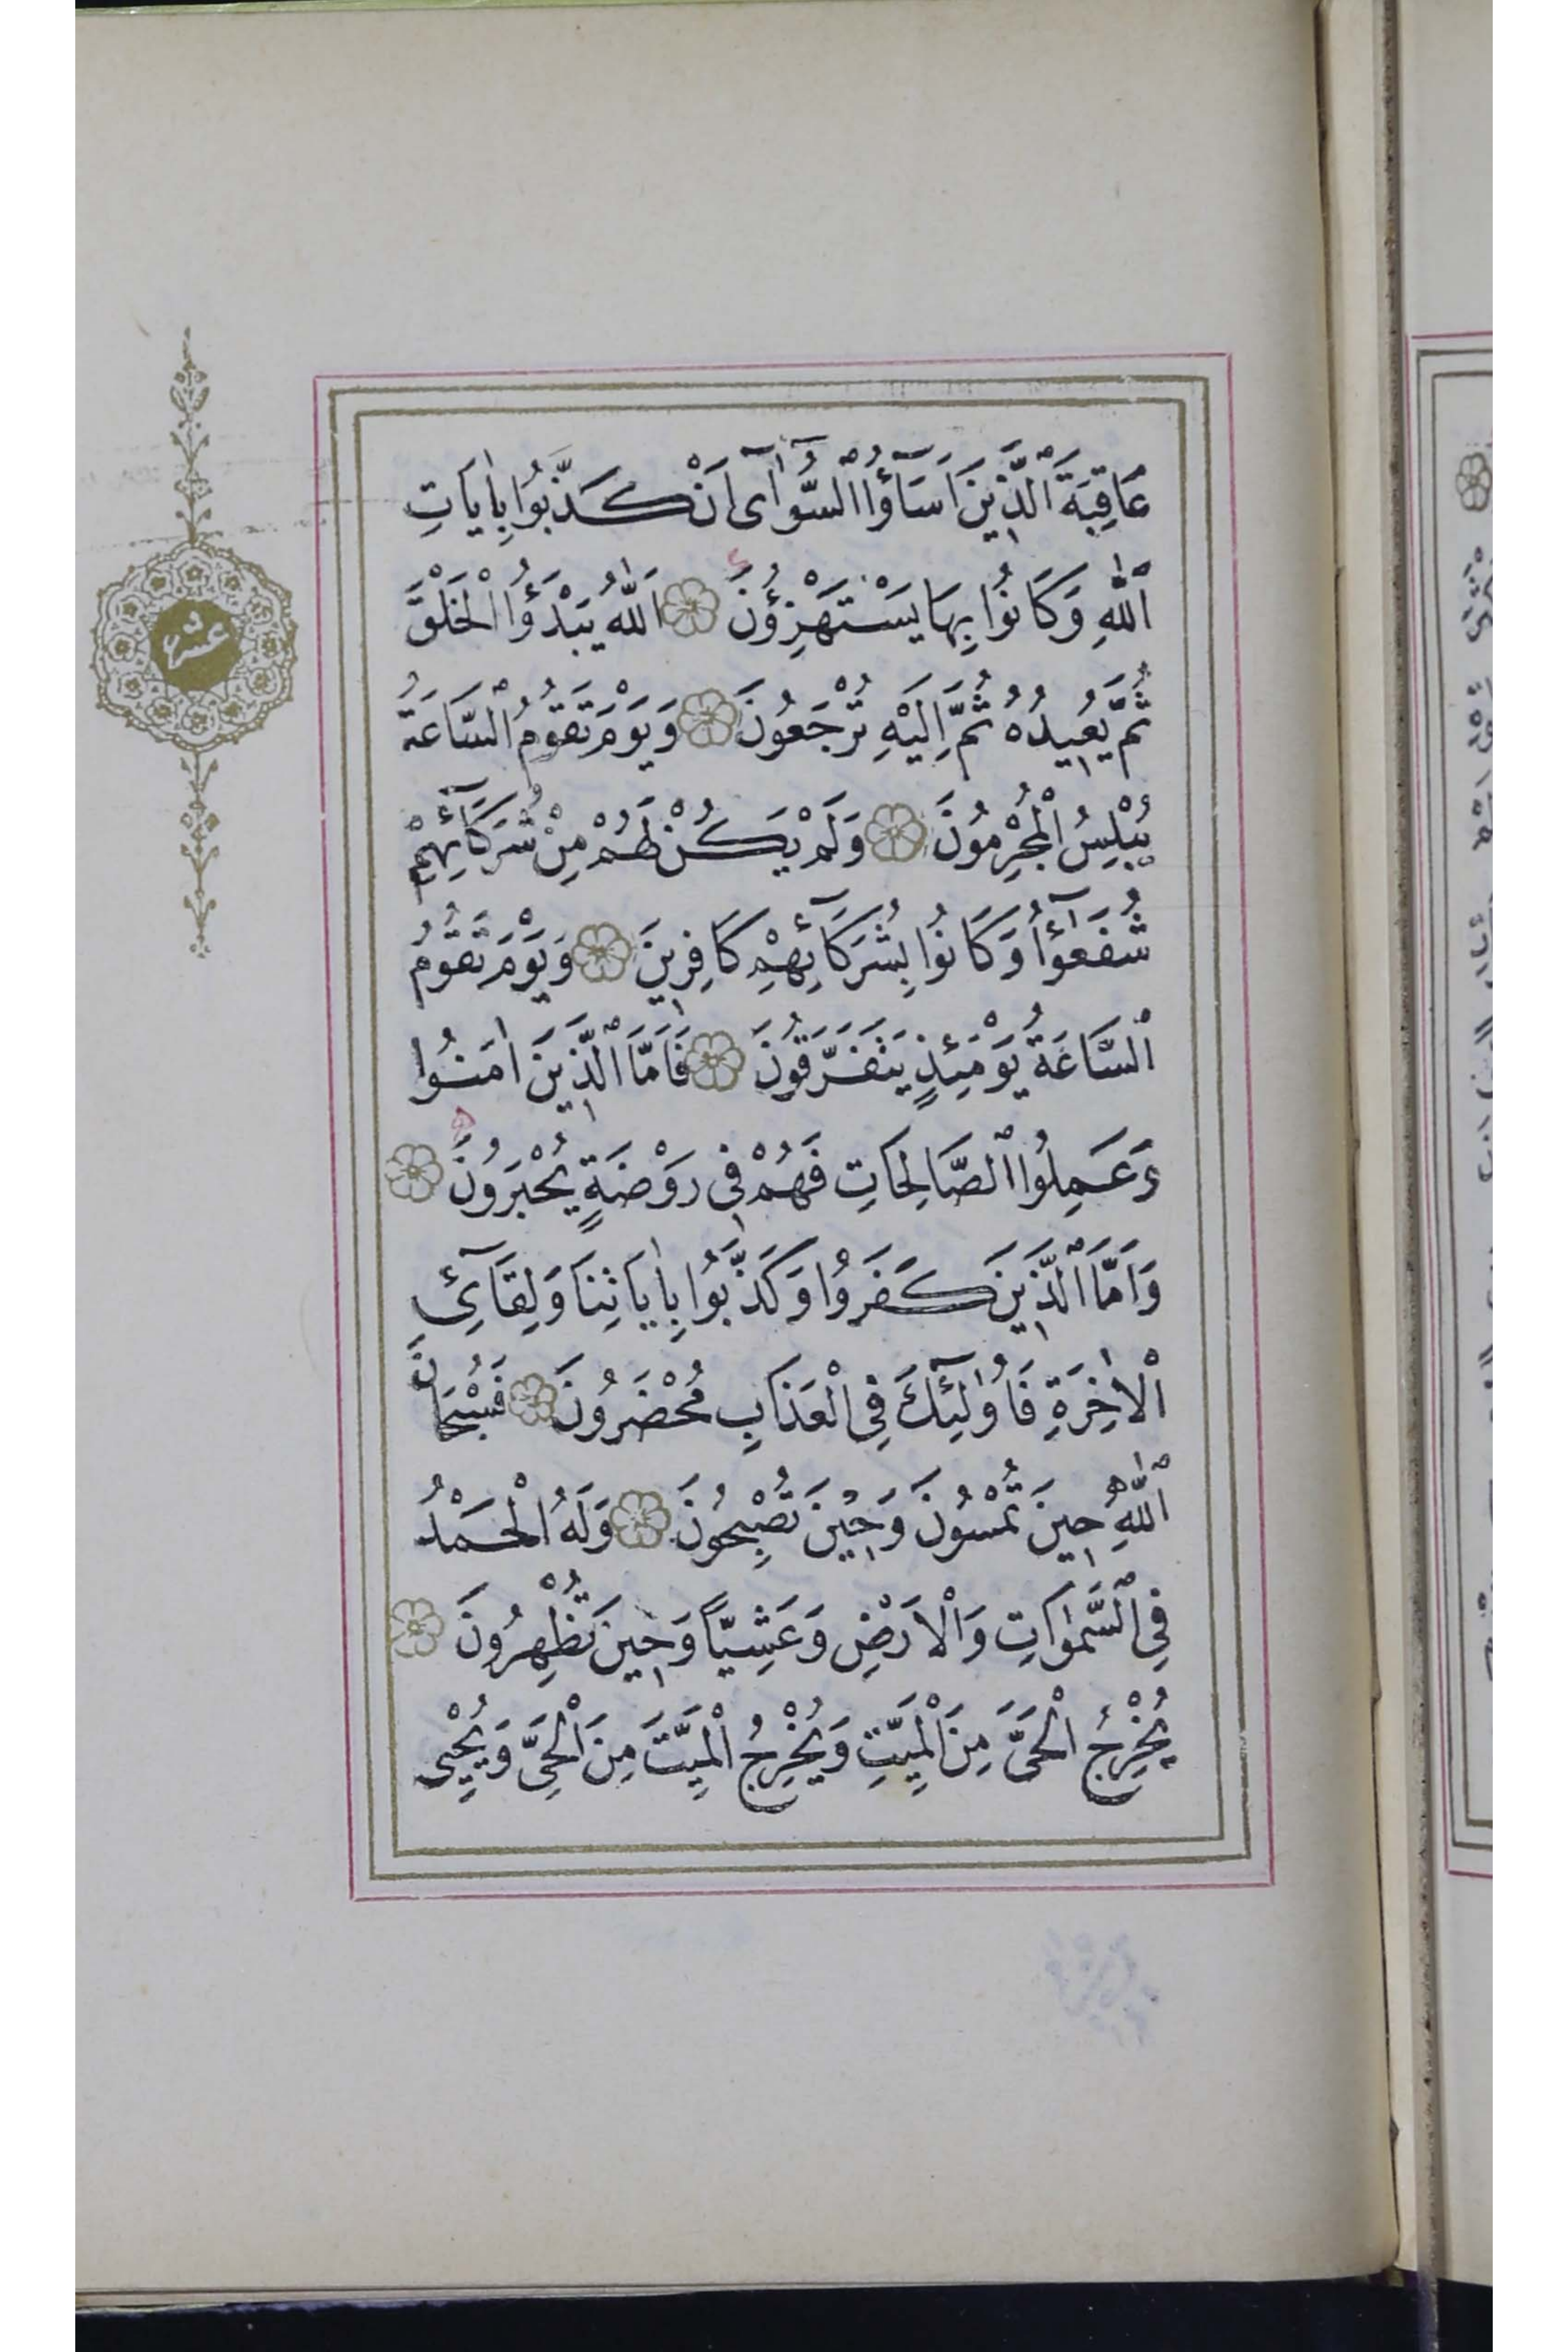 عَاقِبَةَ الَّذِينَ اَسَآؤُا السُّوآٰى اَنْ كَذَّبُوا بِاٰيَاتِ
اللّٰهِ وَكَانُوا بِهَا يَسْتَهْزِؤُنَ اَللّٰهُ يَبْدَؤُا الْخَلْقَ
ثُمَّ يُعِيدُهُ ثُمَّ اِلَيْهِ تُرْجَعُونَ وَيَوْمَ تَقُومُ السَّاعَةُ
يُبْلِسُ الْمُجْرِمُونَ وَلَمْ يَكُنْ لَهُمْ مِنْ شُرَكَآئِهِمْ
شُفَعَٓؤُا وَكَانُوا بِشُرَكَآئِهِمْ كَافِرِينَ وَيَوْمَ تَقُومُ
السَّاعَةُ يَوْمَئِذٍ يَتَفَرَّقُونَ فَاَمَّا الَّذِينَ اٰمَنُوا
وَعَمِلُوا الصَّالِحَاتِ فَهُمْ فِى رَوْضَةٍ يُحْبَرُونَ
وَاَمَّا الَّذِينَ كَفَرُوا وَكَذَّبُوا بِاٰيَاتِنَا وَلِقَآئِ
الْاٰخِرَةِ فَاُولٰٓئِكَ فِى الْعَذَابِ مُحْضَرُونَ فَسُبْحَانَ
اللّٰهِ حِينَ تُمْسُونَ وَحِينَ تُصْبِحُونَ وَلَهُ الْحَمْدُ
فِى السَّمٰوَاتِ وَالْاَرْضِ وَعَشِيًّا وَحِينَ تُظْهِرُونَ
يُخْرِجُ الْحَىَّ مِنَ الْمَيِّتِ وَيُخْرِجُ الْمَيِّتَ مِنَ الْحَىِّ وَيُحْيِى
عشر